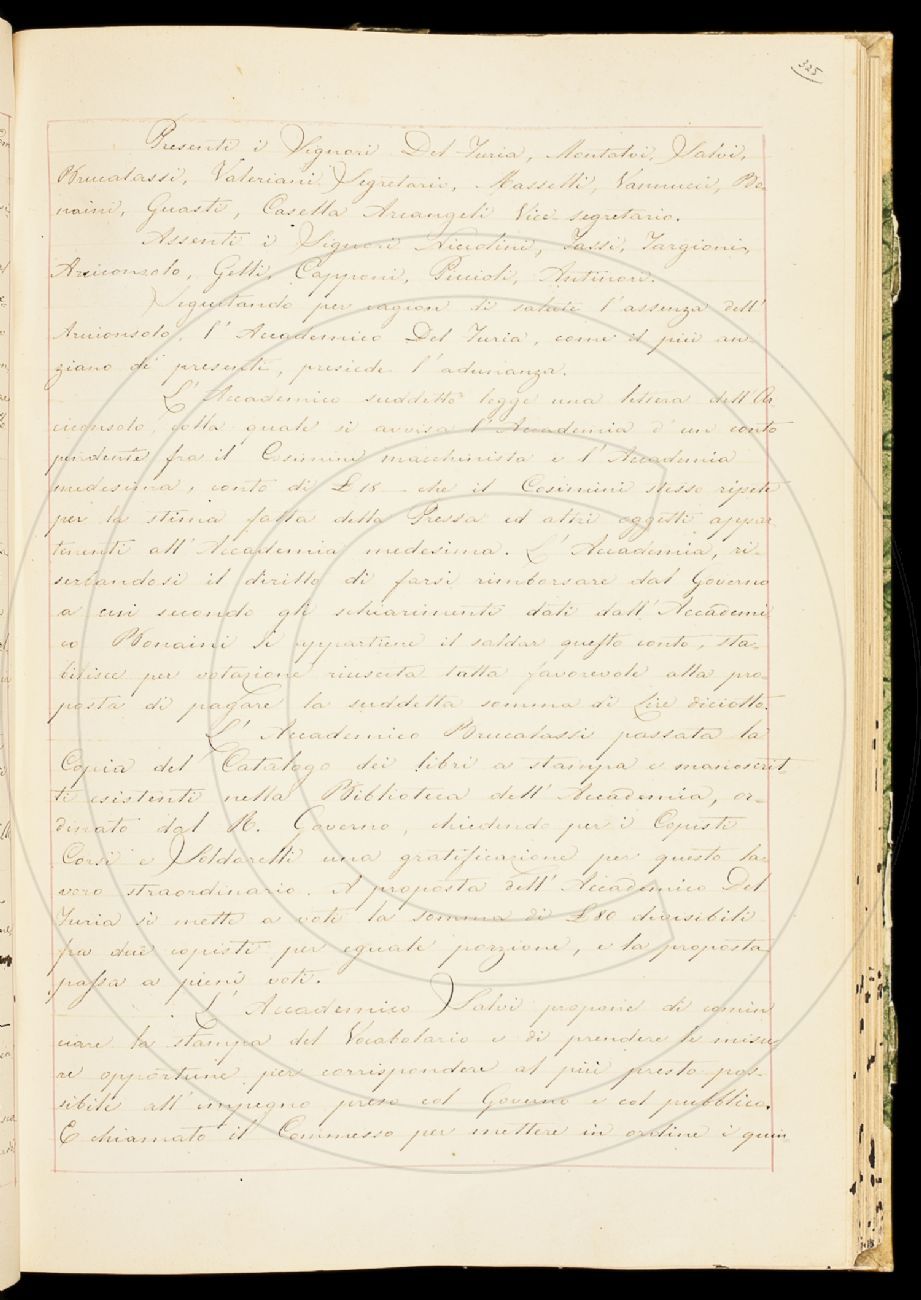 325
Presenti i Signori Del-Furia, Montalvi, Salvi,
Brucalassi, Valeriani Segretario, Masselli, Vannucci, Bo-
naini, Guasti, Casella Arcangeli Vice segretario.
Assenti i Signori Niccolini, Tassi, Targioni,
Arciconsolo, Gelli, Capponi, Puccioli, Antinori.
Seguitando per cagion di salute l'assenza dell'
Arciconsolo, l'Accademico Del Furia, come il più an-
ziano de' presenti, presiede l'adunanza.
L'Accademico suddetto legge una lettera dell'Ar
ciconsolo, colla quale si avvisa l'Accademia d'un conto
pendente fra il Cosimini macchinista e l'Accademia
medesima, conto di £ 18 che il Cosimini stesso ripete
per la stima fatta della Pressa ed altri oggetti appar
tenenti all'Accademia medesima. L'Accademia, ri-
serbandosi il diritto di farsi rimborsare dal Governo
a cui secondo gli schiarimenti dati dall'Accademi
co Bonaini si appartiene il saldar questo conto, sta-
bilisce per votazione riuscita tutta favorevole alla pro-
posta di pagare la suddetta somma di Lire diciotto.
L'Accademico Brucalassi passata la
Copia del Catalogo dei libri a stampa e manoscrit-
ti esistenti nella Biblioteca dell'Accademia, or-
dinato dal R. Governo, chiedendo per i Copisti
Corsi e Soldarelli una gratificazione per questo la-
voro straordinario. A proposta dell'Accademico Del
Furia si mette a voti la somma di £ 80 divisibili
fra due copisti per eguale porzione, e la proposta
passa a pieni voti.
L'Accademico Salvi propone di comin
ciare la stampa del Vocabolario e di prendere le misu-
re opportune per corrispondere al più presto pos-
sibile all'impegno preso col Governo e col pubblico.
E chiamato il Commesso per mettere in ordine i quin